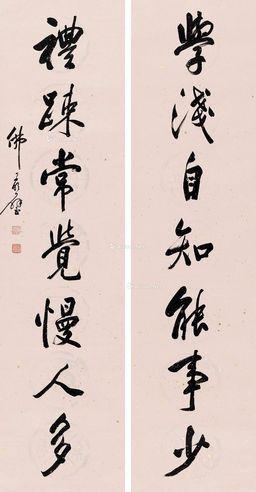 學淺自知能事少
禮疎常覺慢人多
佛